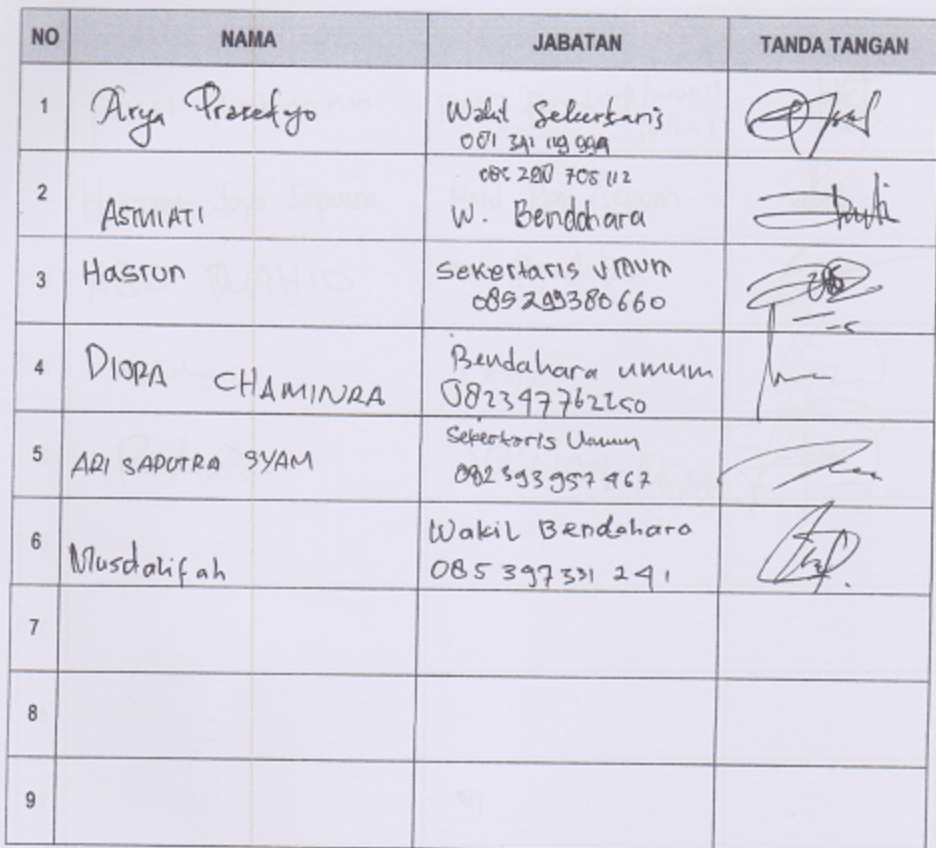 NO NAMA JABATAN TANDA TANGAN
1 Arya Prasetyo Wakil Sekertaris
081 341 119 999
2 ASMIATI 085 280 705 112
W. Bendahara
3 Hasrun Sekertaris Umum
085299380660
4 DIORA CHAMINRA Bendahara umum
082347762250
5 ARI SAPUTRA SYAM Sekertaris Umum
082 393 957 467
6 Musdalifah Wakil Bendahara
085 397331 241
7
8
9